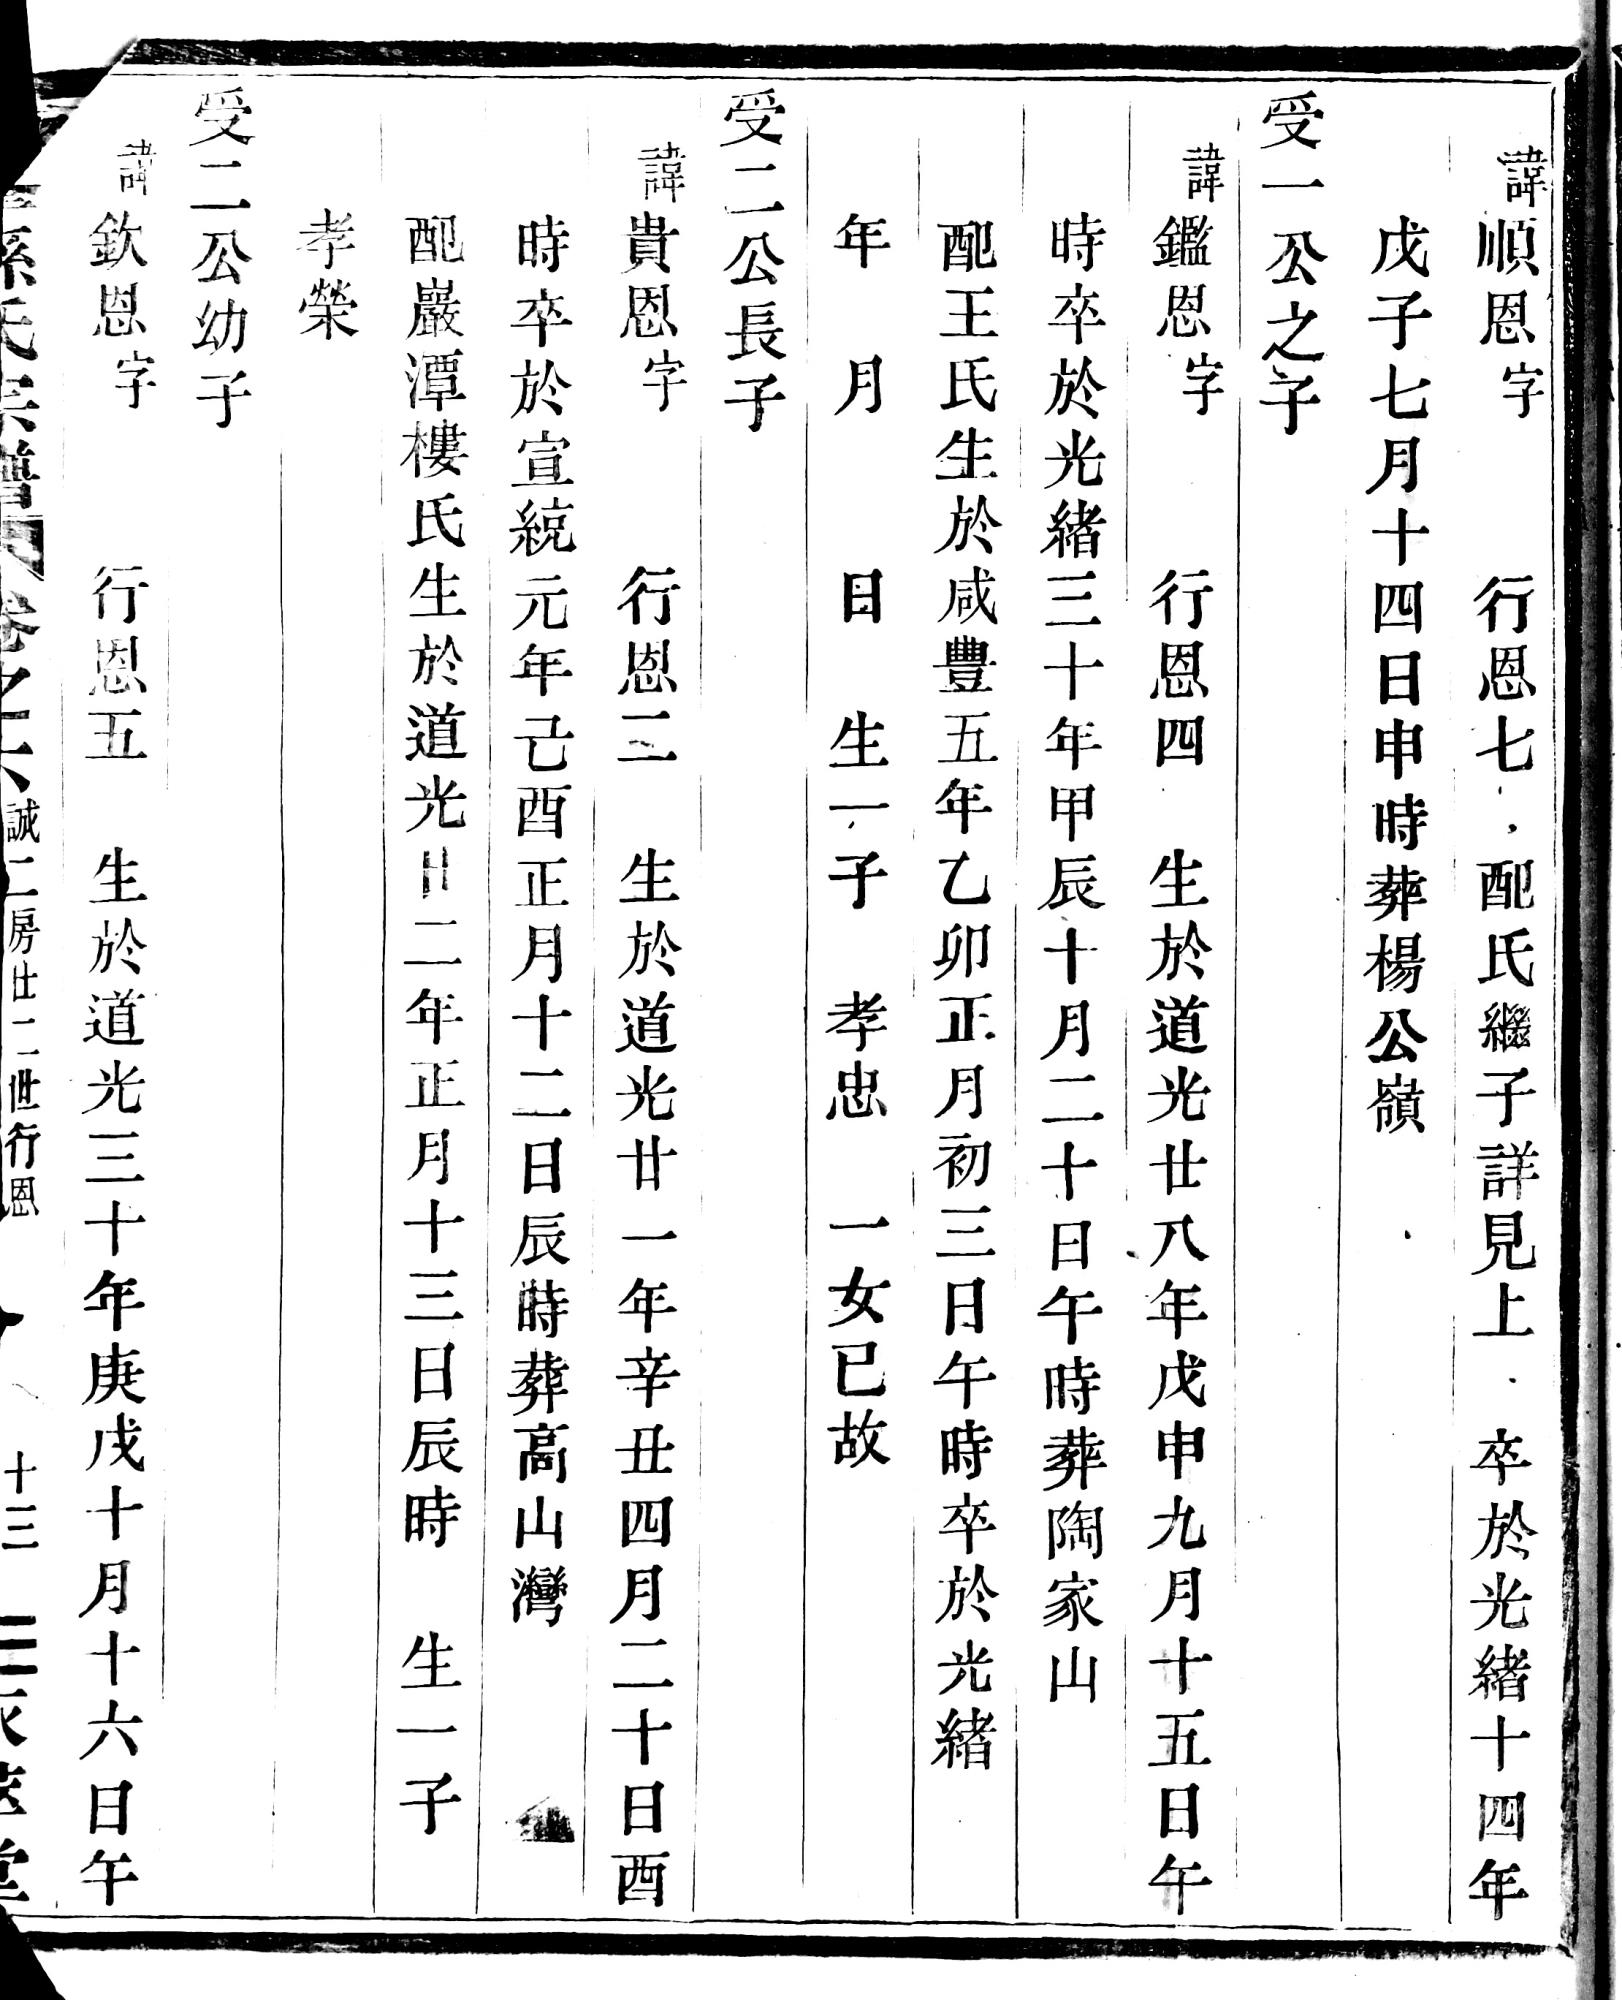 諱順恩字 行恩七 配氏繼子詳見上 卒於光緒十四年
戊子七月十四日申時葬楊公嶺
受一公之子
諱鑑恩字 行恩四 生於道光廿八年戊申九月十五日午
時卒於光緒三十年甲辰十月二十日午時葬陶家山
配王氏生於咸豐五年乙卯正月初三日午時卒於光緒
年 月 日 生一子 孝忠 一女已故
受二公長子
諱貴恩字 行恩二 生於道光廿一年辛丑四月二十日酉
時卒於宣統元年己酉正月十二日辰時葬高山灣
配巖潭樓氏生於道光廿二年正月十三日辰時 生一子
孝榮
受二公幼子
諱欽恩字 行恩五 生於道光三十年庚戌十月十六日午
孫氏宗譜 卷之六 誠二房廿二世行恩 十三